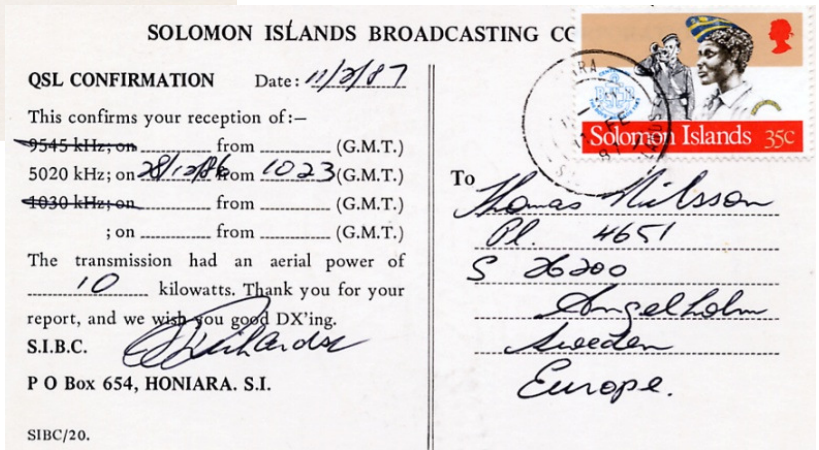 SOLOMON ISLANDS BROADCASTING CO
QSL CONFIRMATION Date: 11/2/87
This confirms your reception of:—
9545 kHz; on from (G.M.T.)
5020 kHz; on 28/12/86 from 1023 (G.M.T.)
1030 kHz; on from (G.M.T.)
; on from (G.M.T.)
The transmission had an aerial power of
10 kilowatts. Thank you for your
report, and we wish you good DX'ing.
S.I.B.C.
P O Box 654, HONIARA. S.I.
SIBC/20.
Solomon Islands 35c
To
Thomas Nilsson
Pl. 4651
S 26200
Angelholm
Sweden
Europe.